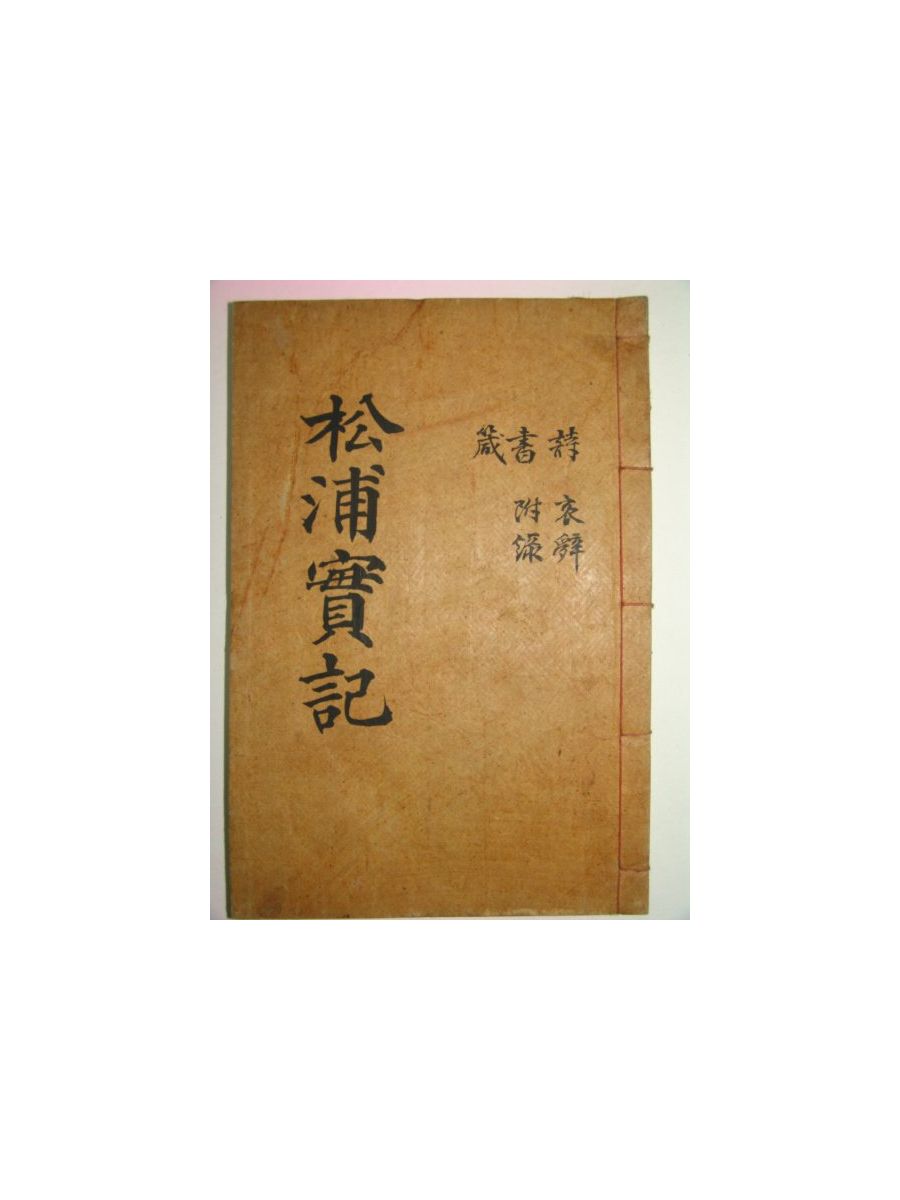 詩 書 箴
哀辭 附錄
松浦實記